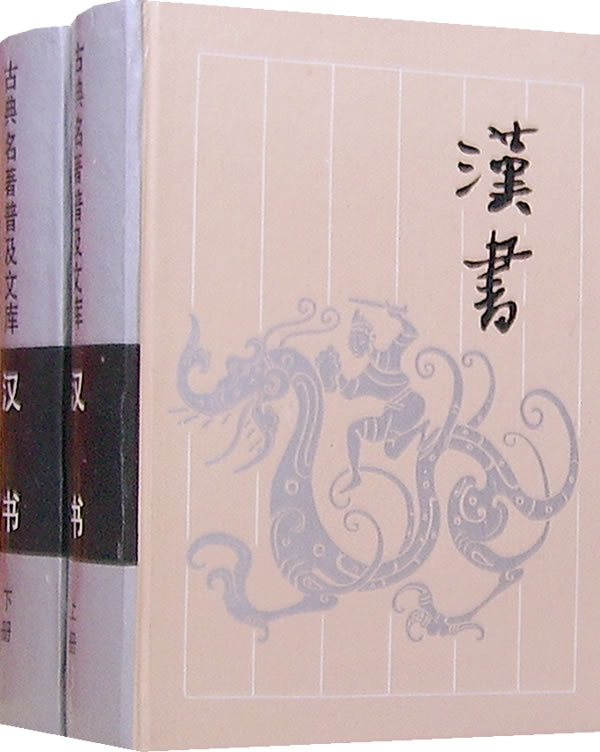 漢書
古典名著普及文库
汉书
上册
古典名著普及文库
汉书
下册